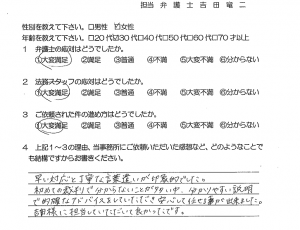 担当 弁護士 吉田竜二
性別を教えて下さい。□男性 ☑女性
年齢を教えて下さい。□20代☑30代□40代□50代□60代□70才以上
1 弁護士の応対はどうでしたか。
①大変満足 ②満足 ③普通 ④不満 ⑤大変不満 ⑥分からない
2 法務スタッフの応対はどうでしたか。
①大変満足 ②満足 ③普通 ④不満 ⑤大変不満 ⑥分からない
3 ご依頼された件の進め方はどうでしたか。
①大変満足 ②満足 ③普通 ④不満 ⑤大変不満 ⑥分からない
4 上記1～3の理由、当事務所にご依頼いただいた感想など、どのようなことで
も結構ですからお書きください。
早い対応と丁寧な言葉遣いが印象的でした。
初めての裁判で分からないことが多い中、分かりやすい説明
で的確なアドバイスをしていただき、安心して任せる事が出来ました。
吉田様に担当していただいて良かったです。